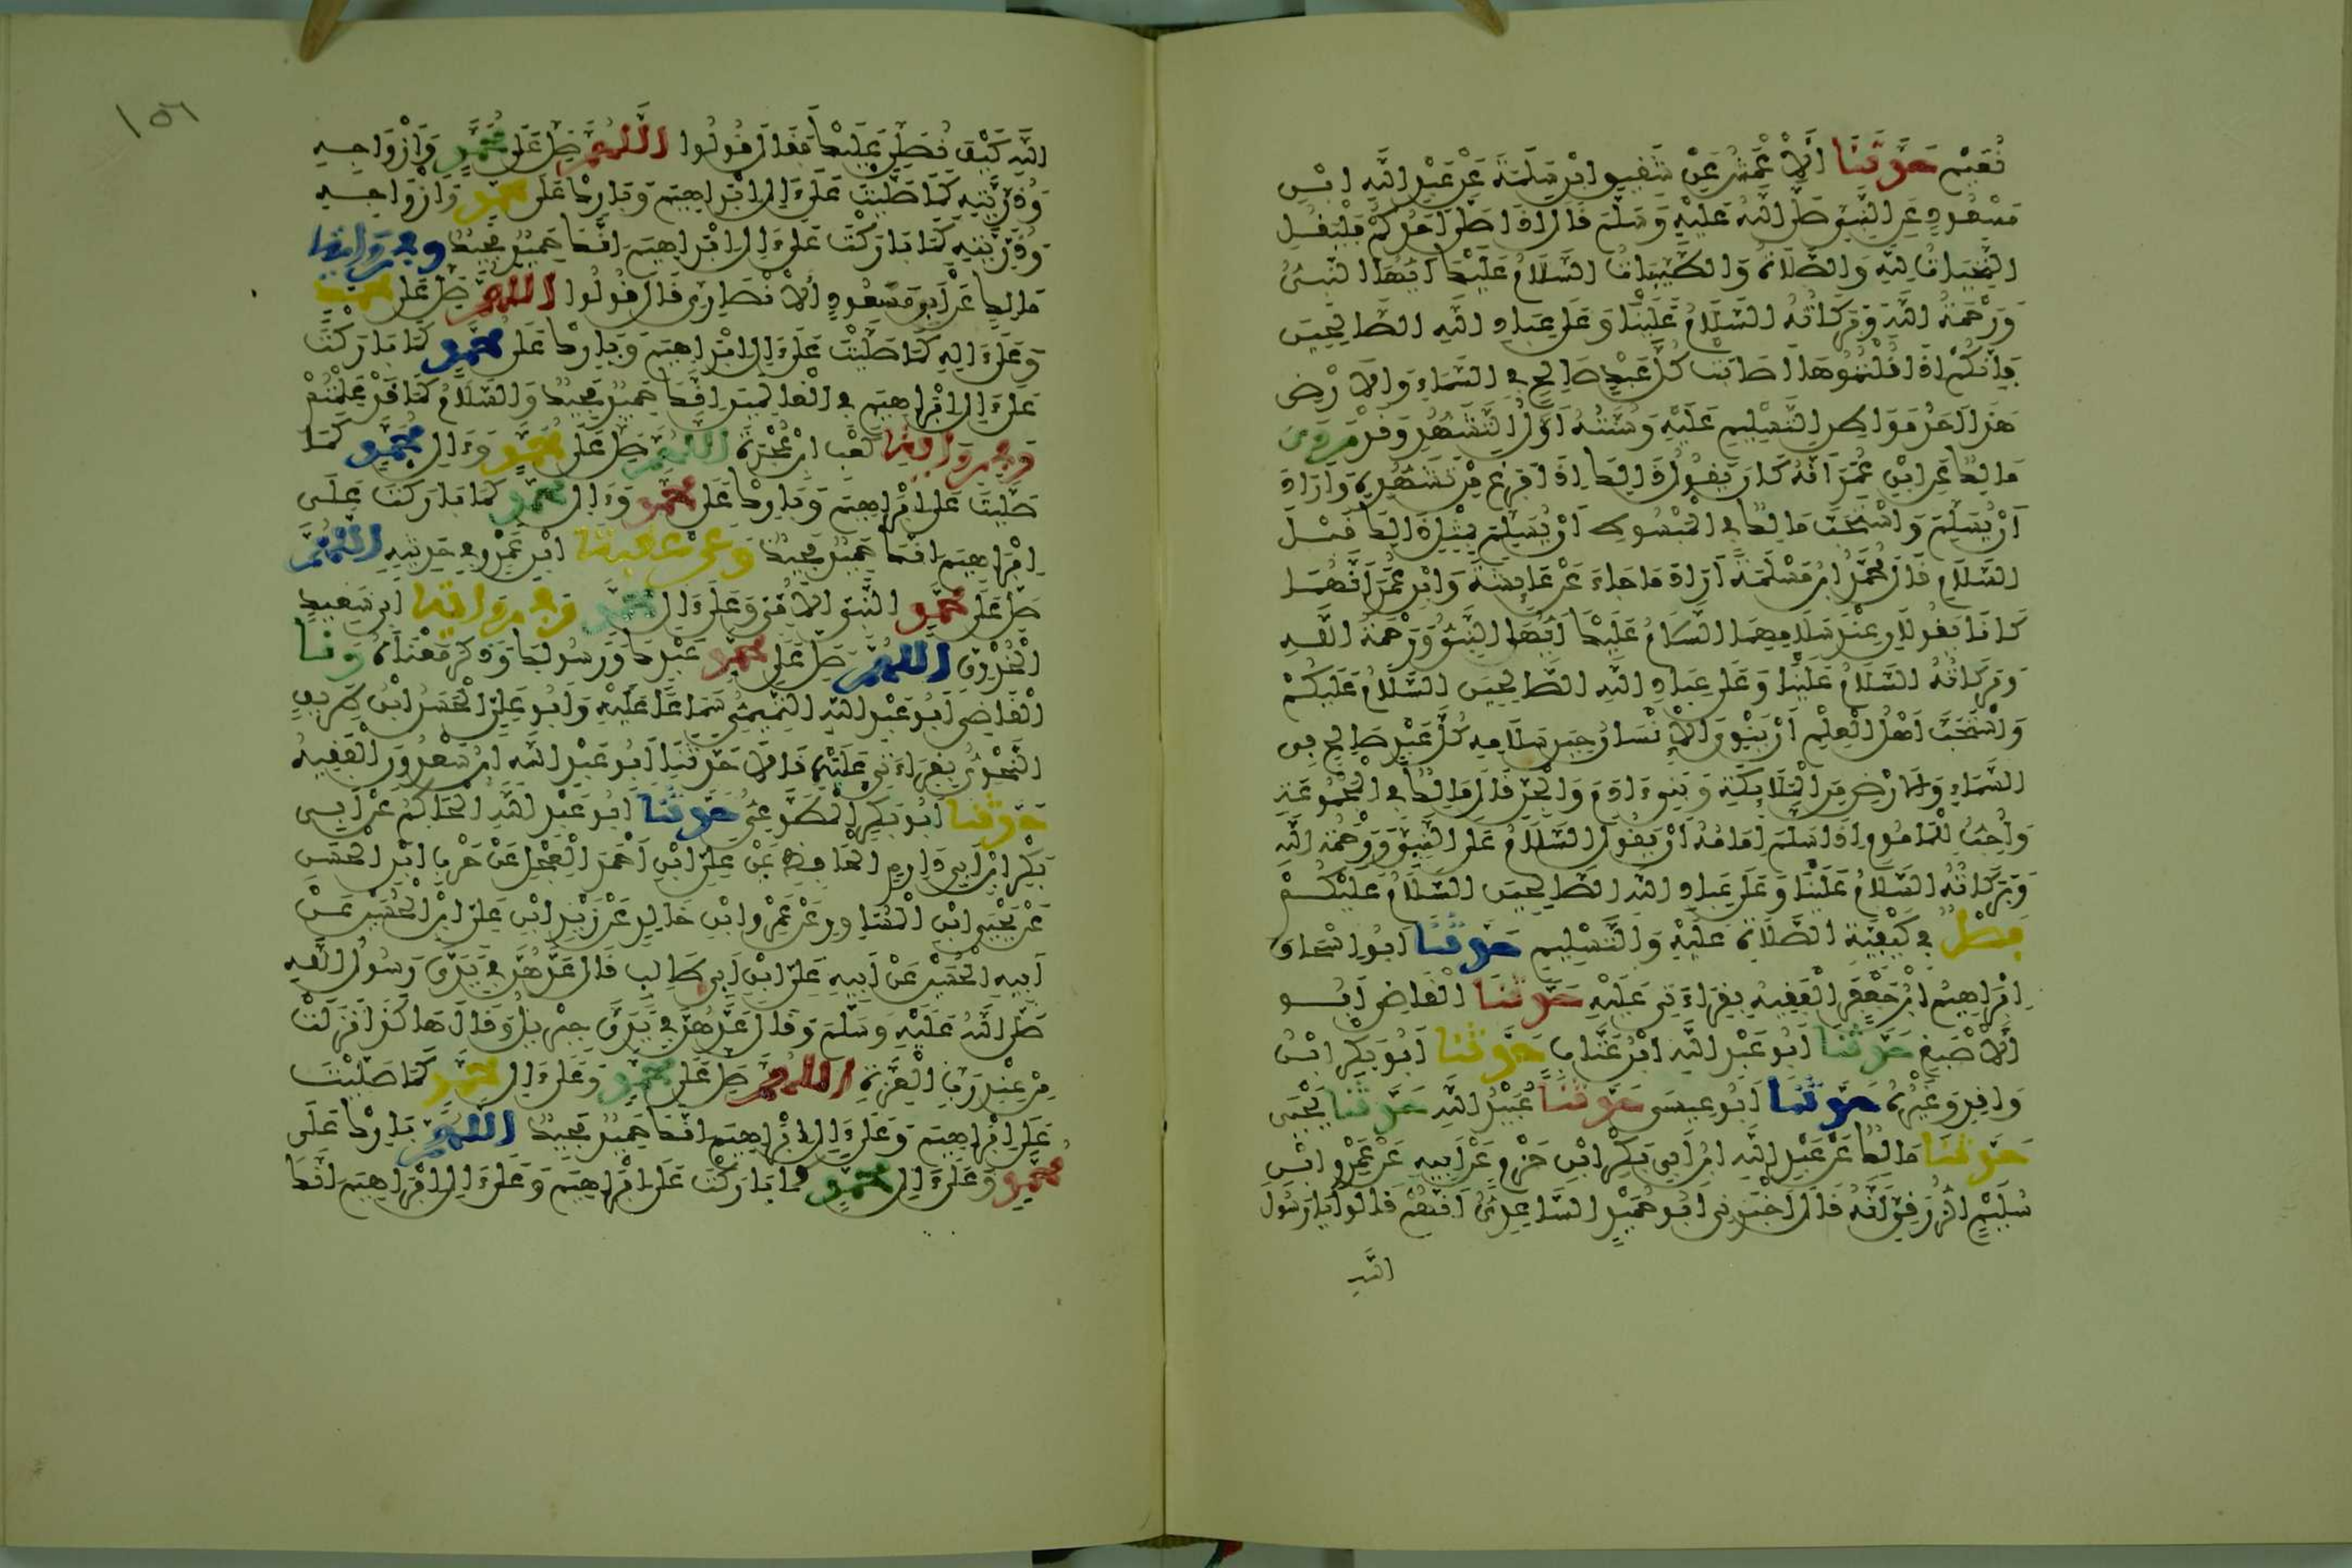 نُعَيْمٍ حَدَّثَنَا الْأَعْمَشُ عَنْ شَقِيقِ ابْنِ سَلَمَةَ عَنْ عَبْدِ اللَّهِ ابْنِ
مَسْعُودٍ عَنِ النَّبِيِّ صَلَّى اللَّهُ عَلَيْهِ وَسَلَّمَ قَالَ إِذَا صَلَّى أَحَدُكُمْ فَلْيَقُلِ
التَّحِيَّاتُ لِلَّهِ وَالصَّلَاةُ وَالطَّيِّبَاتُ السَّلَامُ عَلَيْكَ أَيُّهَا النَّبِيءُ
وَرَحْمَةُ اللَّهِ وَبَرَكَاتُهُ السَّلَامُ عَلَيْنَا وَعَلَى عِبَادِ اللَّهِ الصَّالِحِينَ
فَإِنَّكُمْ إِذَا قُلْتُمُوهَا أَصَابَتْ كُلَّ عَبْدٍ صَالِحٍ فِي السَّمَاءِ وَالْأَرْضِ
هَذَا أَحَدُ مَوَاطِنِ التَّسْلِيمِ عَلَيْهِ وَسُنَّتُهُ أَوَّلُ التَّشَهُّدِ وَقَدْ رَوَى
مَالِكٌ عَنِ ابْنِ عُمَرَ أَنَّهُ كَانَ يَقُولُ ذَلِكَ إِذَا فَرَغَ مِنْ تَشَهُّدِهِ وَأَرَادَ
أَنْ يُسَلِّمَ وَاسْتَحَبَّ مَالِكٌ فِي الْمَبْسُوطِ أَنْ يُسَلِّمَ بِمِثْلِ ذَلِكَ قَبْلَ
السَّلَامِ قَالَ مُحَمَّدُ ابْنُ مَسْلَمَةَ أَرَادَ مَا جَاءَ عَنْ عَائِشَةَ وَابْنِ عُمَرَ أَنَّهُمَا
كَانَا يَقُولَانِ عِنْدَ سَلَامِهِمَا السَّلَامُ عَلَيْكَ أَيُّهَا النَّبِيُّ وَرَحْمَةُ اللَّهِ
وَبَرَكَاتُهُ السَّلَامُ عَلَيْنَا وَعَلَى عِبَادِ اللَّهِ الصَّالِحِينَ السَّلَامُ عَلَيْكُمْ
وَاسْتَحَبَّ أَهْلُ الْعِلْمِ أَنْ يَنْوِيَ الْإِنْسَانُ حِينَ سَلَامِهِ كُلَّ عَبْدٍ صَالِحٍ فِي
السَّمَاءِ وَالْأَرْضِ مِنَ الْمَلَائِكَةِ وَبَنِي ءَادَمَ وَالْجِنِّ قَالَ مَالِكٌ فِي الْمَجْمُوعَةِ
وَأُحِبُّ لِلْمَأْمُومِ إِذَا سَلَّمَ إِمَامُهُ أَنْ يَقُولَ السَّلَامُ عَلَى النَّبِيِّ وَرَحْمَةُ اللَّهِ
وَبَرَكَاتُهُ السَّلَامُ عَلَيْنَا وَعَلَى عِبَادِ اللَّهِ الصَّالِحِينَ السَّلَامُ عَلَيْكُمْ
فَصْلٌ فِي كَيْفِيَّةِ الصَّلَاةِ عَلَيْهِ وَالتَّسْلِيمِ حَدَّثَنَا أَبُو إِسْحَاقَ
إِبْرَاهِيمُ ابْنُ جَعْفَرٍ الْفَقِيهُ بِقِرَاءَتِي عَلَيْهِ حَدَّثَنَا الْقَاضِي أَبُو
الْأَصْبَغِ حَدَّثَنَا أَبُو عَبْدِ اللَّهِ ابْنُ عَتَّابٍ حَدَّثَنَا أَبُو بَكْرِ ابْنُ
وَافِدٍ وَغَيْرُهُ حَدَّثَنَا أَبُو عِيسَى حَدَّثَنَا عُبَيْدُ اللَّهِ حَدَّثَنَا يَحْيَى
حَدَّثَنَا مَالِكٌ عَنْ عَبْدِ اللَّهِ ابْنِ أَبِي بَكْرِ ابْنِ حَزْمٍ عَنْ أَبِيهِ عَنْ عَمْرِو ابْنِ
سُلَيْمٍ الزُّرَقِيِّ أَنَّهُ قَالَ أَخْبَرَنِي أَبُو حُمَيْدٍ السَّاعِدِيُّ أَنَّهُمْ قَالُوا يَا رَسُولَ
اللَّهِ
١٥٦
اللَّهِ كَيْفَ نُصَلِّي عَلَيْكَ فَقَالَ قُولُوا اللَّهُمَّ صَلِّ عَلَى مُحَمَّدٍ وَأَزْوَاجِهِ
وَذُرِّيَّتِهِ كَمَا صَلَّيْتَ عَلَى ءَالِ إِبْرَاهِيمَ وَبَارِكْ عَلَى مُحَمَّدٍ وَأَزْوَاجِهِ
وَذُرِّيَّتِهِ كَمَا بَارَكْتَ عَلَى ءَالِ إِبْرَاهِيمَ إِنَّكَ حَمِيدٌ مَجِيدٌ وَفِي رِوَايَةِ
مَالِكٍ عَنْ أَبِي مَسْعُودٍ الْأَنْصَارِيِّ قَالَ قُولُوا اللَّهُمَّ صَلِّ عَلَى مُحَمَّدٍ
وَعَلَى ءَالِهِ كَمَا صَلَّيْتَ عَلَى ءَالِ إِبْرَاهِيمَ وَبَارِكْ عَلَى مُحَمَّدٍ كَمَا بَارَكْتَ
عَلَى ءَالِ إِبْرَاهِيمَ فِي الْعَالَمِينَ إِنَّكَ حَمِيدٌ مَجِيدٌ وَالسَّلَامُ كَمَا قَدْ عَلِمْتُمْ
وَفِي رِوَايَةِ كَعْبِ ابْنِ عُجْرَةَ اللَّهُمَّ صَلِّ عَلَى مُحَمَّدٍ وَءَالِ مُحَمَّدٍ كَمَا
صَلَّيْتَ عَلَى إِبْرَاهِيمَ وَبَارِكْ عَلَى مُحَمَّدٍ وَءَالِ مُحَمَّدٍ كَمَا بَارَكْتَ عَلَى
إِبْرَاهِيمَ إِنَّكَ حَمِيدٌ مَجِيدٌ وَعَنْ عُقْبَةَ ابْنِ عَمْرٍو فِي حَدِيثِهِ اللَّهُمَّ
صَلِّ عَلَى مُحَمَّدٍ النَّبِيِّ الْأُمِّيِّ وَعَلَى ءَالِ مُحَمَّدٍ وَفِي رِوَايَةِ أَبِي سَعِيدٍ
الْخُدْرِيِّ اللَّهُمَّ صَلِّ عَلَى مُحَمَّدٍ عَبْدِكَ وَرَسُولِكَ وَذَكَرَ مَعْنَاهُ وَنَا
الْقَاضِي أَبُو عَبْدِ اللَّهِ التَّمِيمِيُّ سَمَاعًا عَلَيْهِ وَأَبُو عَلِيٍّ الْحَسَنُ ابْنُ طَرِيفٍ
النَّحْوِيُّ بِقِرَاءَتِي عَلَيْهِ قَالَا حَدَّثَنَا أَبُو عَبْدِ اللَّهِ ابْنُ سَعْدُونَ الْفَقِيهُ
حَدَّثَنَا أَبُو بَكْرٍ الْمُطَّوِّعِيُّ حَدَّثَنَا أَبُو عَبْدِ اللَّهِ الْحَاكِمُ عَنْ أَبِي
بَكْرِ ابْنِ أَبِي دَارِمٍ الْحَافِظِ عَنْ عَلِيِّ ابْنِ أَحْمَدَ الْعِجْلِيِّ عَنْ حَرْبِ ابْنِ الْحَسَنِ
عَنْ يَحْيَى ابْنِ الْمُسَاوِرِ عَنْ عَمْرِو ابْنِ خَالِدٍ عَنْ زَيْدِ ابْنِ عَلِيِّ ابْنِ الْحُسَيْنِ عَنْ
أَبِيهِ الْحُسَيْنِ عَنْ أَبِيهِ عَلِيِّ ابْنِ أَبِي طَالِبٍ قَالَ عَدَّهُنَّ فِي يَدِي رَسُولُ اللَّهِ
صَلَّى اللَّهُ عَلَيْهِ وَسَلَّمَ وَقَالَ عَدَّهُنَّ فِي يَدِي جِبْرِيلُ وَقَالَ هَكَذَا نَزَلَتْ
مِنْ عِنْدِ رَبِّ الْعِزَّةِ اللَّهُمَّ صَلِّ عَلَى مُحَمَّدٍ وَعَلَى ءَالِ مُحَمَّدٍ كَمَا صَلَّيْتَ
عَلَى إِبْرَاهِيمَ وَعَلَى ءَالِ إِبْرَاهِيمَ إِنَّكَ حَمِيدٌ مَجِيدٌ اللَّهُمَّ بَارِكْ عَلَى
مُحَمَّدٍ وَعَلَى ءَالِ مُحَمَّدٍ كَمَا بَارَكْتَ عَلَى إِبْرَاهِيمَ وَعَلَى ءَالِ إِبْرَاهِيمَ إِنَّكَ